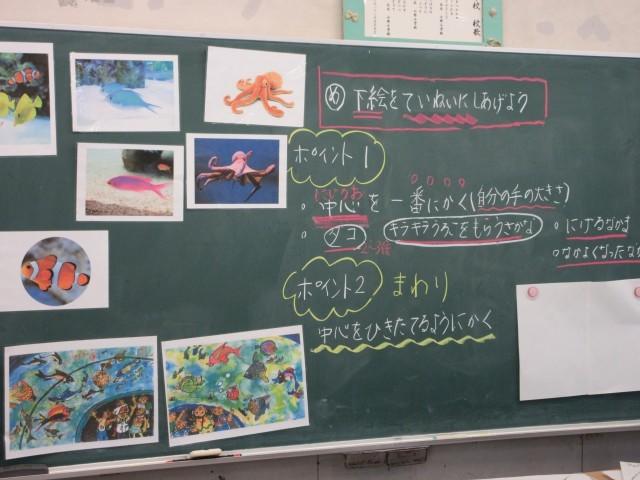 校 校歌
め 下絵をていねいにしあげよう
ポイント1
にじうお
。中心を 一番にかく(自分の手の大きさ)
。タコ キラキラうろこをもらうさかな
2~3倍
。にげるなかま
。なかよくなったなか
ポイント2 まわり
中心をひきたてるようにかく